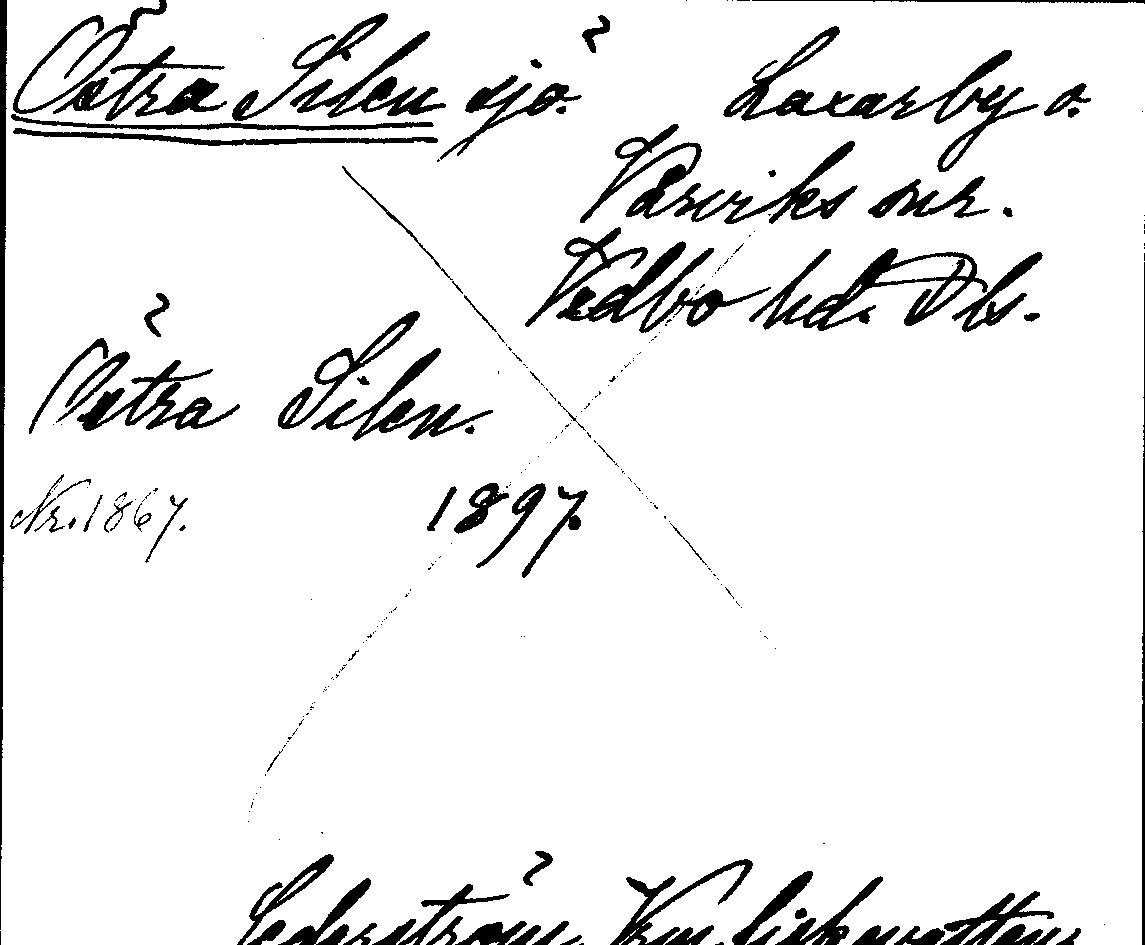 Östra Silen sjö. Laxarby o.
Vårviks snr.
Vedbo hd. Dls.
Östra Silen.
Nr. 1867. 1897.
Cederström, Vrm. fiskevatten